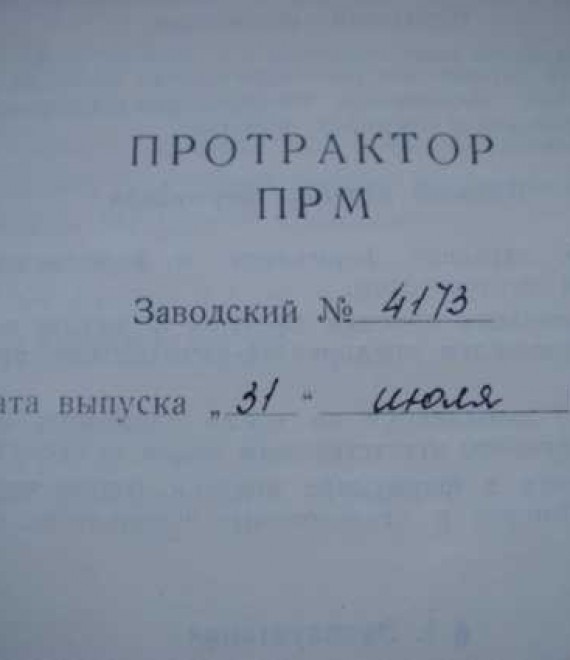 ПРОТРАКТОР
ПРМ
Заводский № 4173
ата выпуска „31“ июля